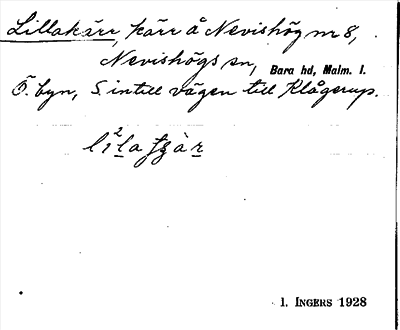 Lillakärr, kärr å Nevishög nr 8,
Nevishögs sn, Bara hd, Malm. l.
Ö. byn, S. intill vägen till Klågerup.
li²la
I. INGERS 1928